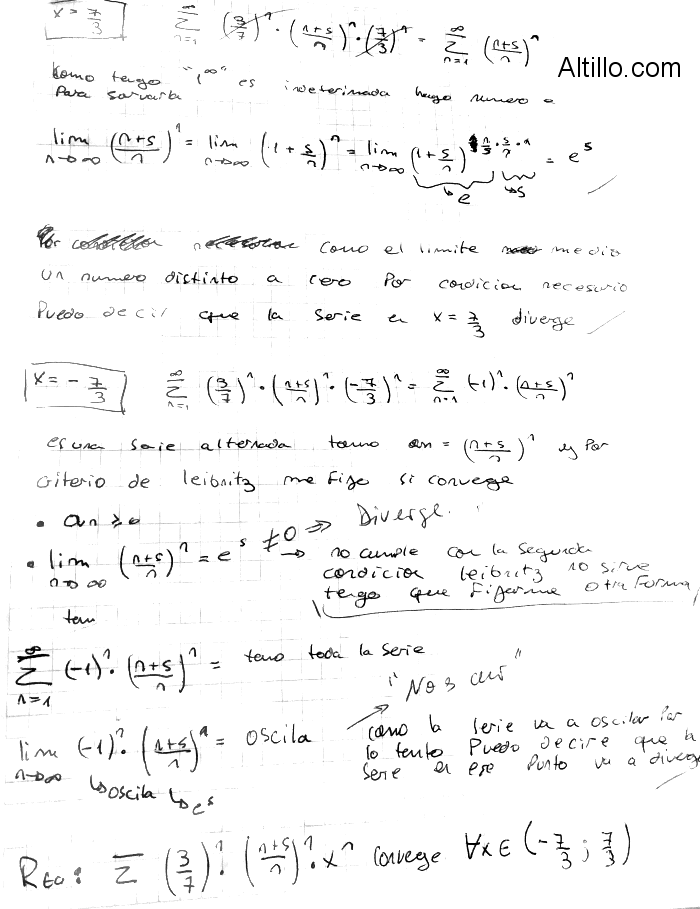 x = 7/3   ∞ Σ n=1 (3/7)^n · ((n+5)/n)^n · (7/3)^n = ∞ Σ n=1 ((n+5)/n)^n
Altillo.com
Como tengo "1^∞" es indeterminada hago numero e
Para salvarla
lim n→∞ ((n+5)/n)^n = lim n→∞ (1 + 5/n)^n = lim n→∞ (1 + 5/n)^(n/5 · 5/n · n) = e^5
↳ e ↳ 5
como el limite me dio
un numero distinto a cero Por condicion necesario
Puedo decir que la serie en x = 7/3 diverge
x = - 7/3   ∞ Σ n=1 (3/7)^n · ((n+5)/n)^n · (-7/3)^n = ∞ Σ n=1 (-1)^n · ((n+5)/n)^n
es una serie alternada tomo an = ((n+5)/n)^n y Por
criterio de leibnitz me fijo si converge
• an ≥ 0
⇒ Diverge.
• lim n→∞ ((n+5)/n)^n = e^5 ≠ 0 → no cumple con la segunda
condicion leibnitz no sirve
tengo que fijarme otra forma
tom
∞ Σ n=1 (-1)^n · ((n+5)/n)^n = tomo toda la serie
lim n→∞ (-1)^n · ((n+5)/n)^n = oscila
↳ oscila ↳ e^5
como la serie va a oscilar Por
lo tanto Puedo decir que la
serie en ese Punto va a diverge
Rta: Σ (3/7)^n · ((n+5)/n)^n · x^n converge ∀x ∈ (-7/3 ; 7/3)